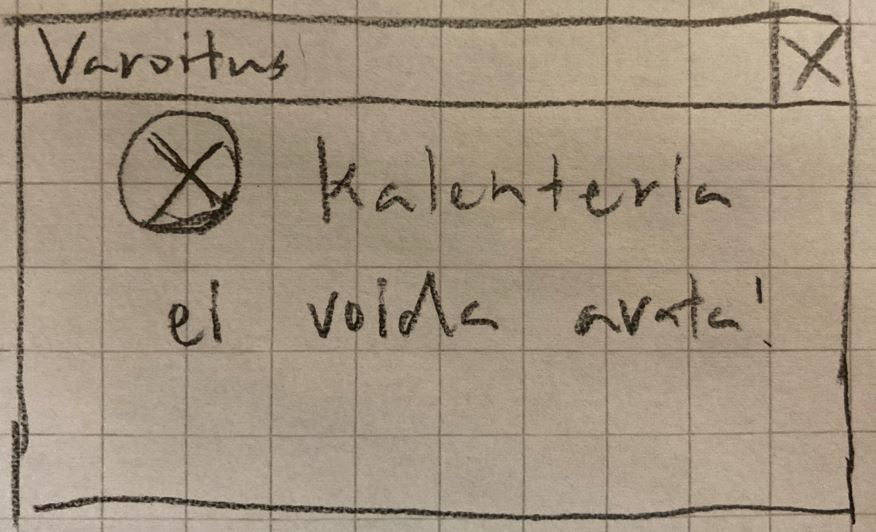 Varoitus X
Kalenteria
ei voida avata!